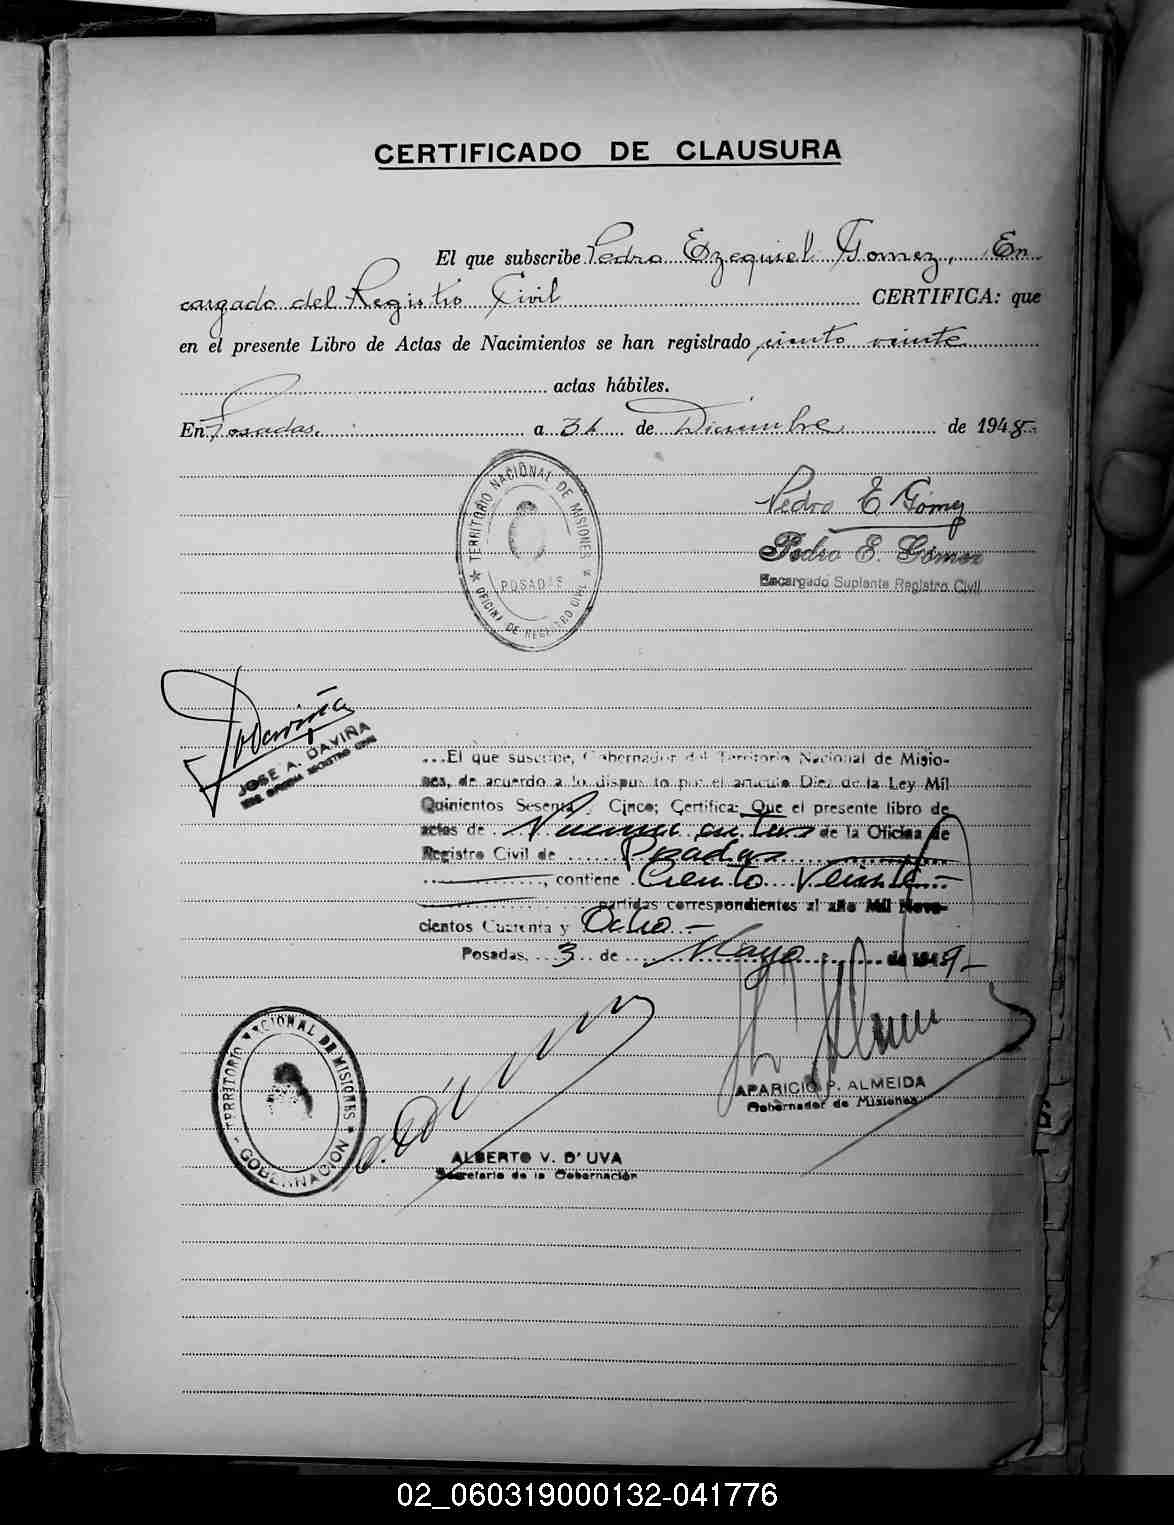 CERTIFICADO DE CLAUSURA
El que subscribe Pedro Ezequiel Gomez, En
cargado del Registro Civil CERTIFICA: que
en el presente Libro de Actas de Nacimientos se han registrado ciento veinte
actas hábiles.
En Posadas, a 31 de Diciembre de 1948.
TERRITORIO NACIONAL DE MISIONES
POSADAS
OFICINA DE REGISTRO CIVIL
Pedro E Gómez
Pedro E. Gómez
Encargado Suplente Registro Civil
JOSE A. DAVIÑA
REGISTRO CIVIL
...El que suscribe, Gobernador del Territorio Nacional de Misio-
nes, de acuerdo a lo dispuesto por el artículo Diez de la Ley Mil
Quinientos Sesenta y Cinco; Certifica: Que el presente libro de
actas de Nacimientos de la Oficina de
Registro Civil de Posadas
contiene Ciento Veinte
partidas correspondientes al año Mil Nove-
cientos Cuarenta y Ocho.-
Posadas, 3 de Mayo de 1949-
TERRITORIO NACIONAL DE MISIONES
GOBERNACION
APARICIO P. ALMEIDA
Gobernador de Misiones
ALBERTO V. D'UVA
Secretario de la Gobernación
02_060319000132-041776